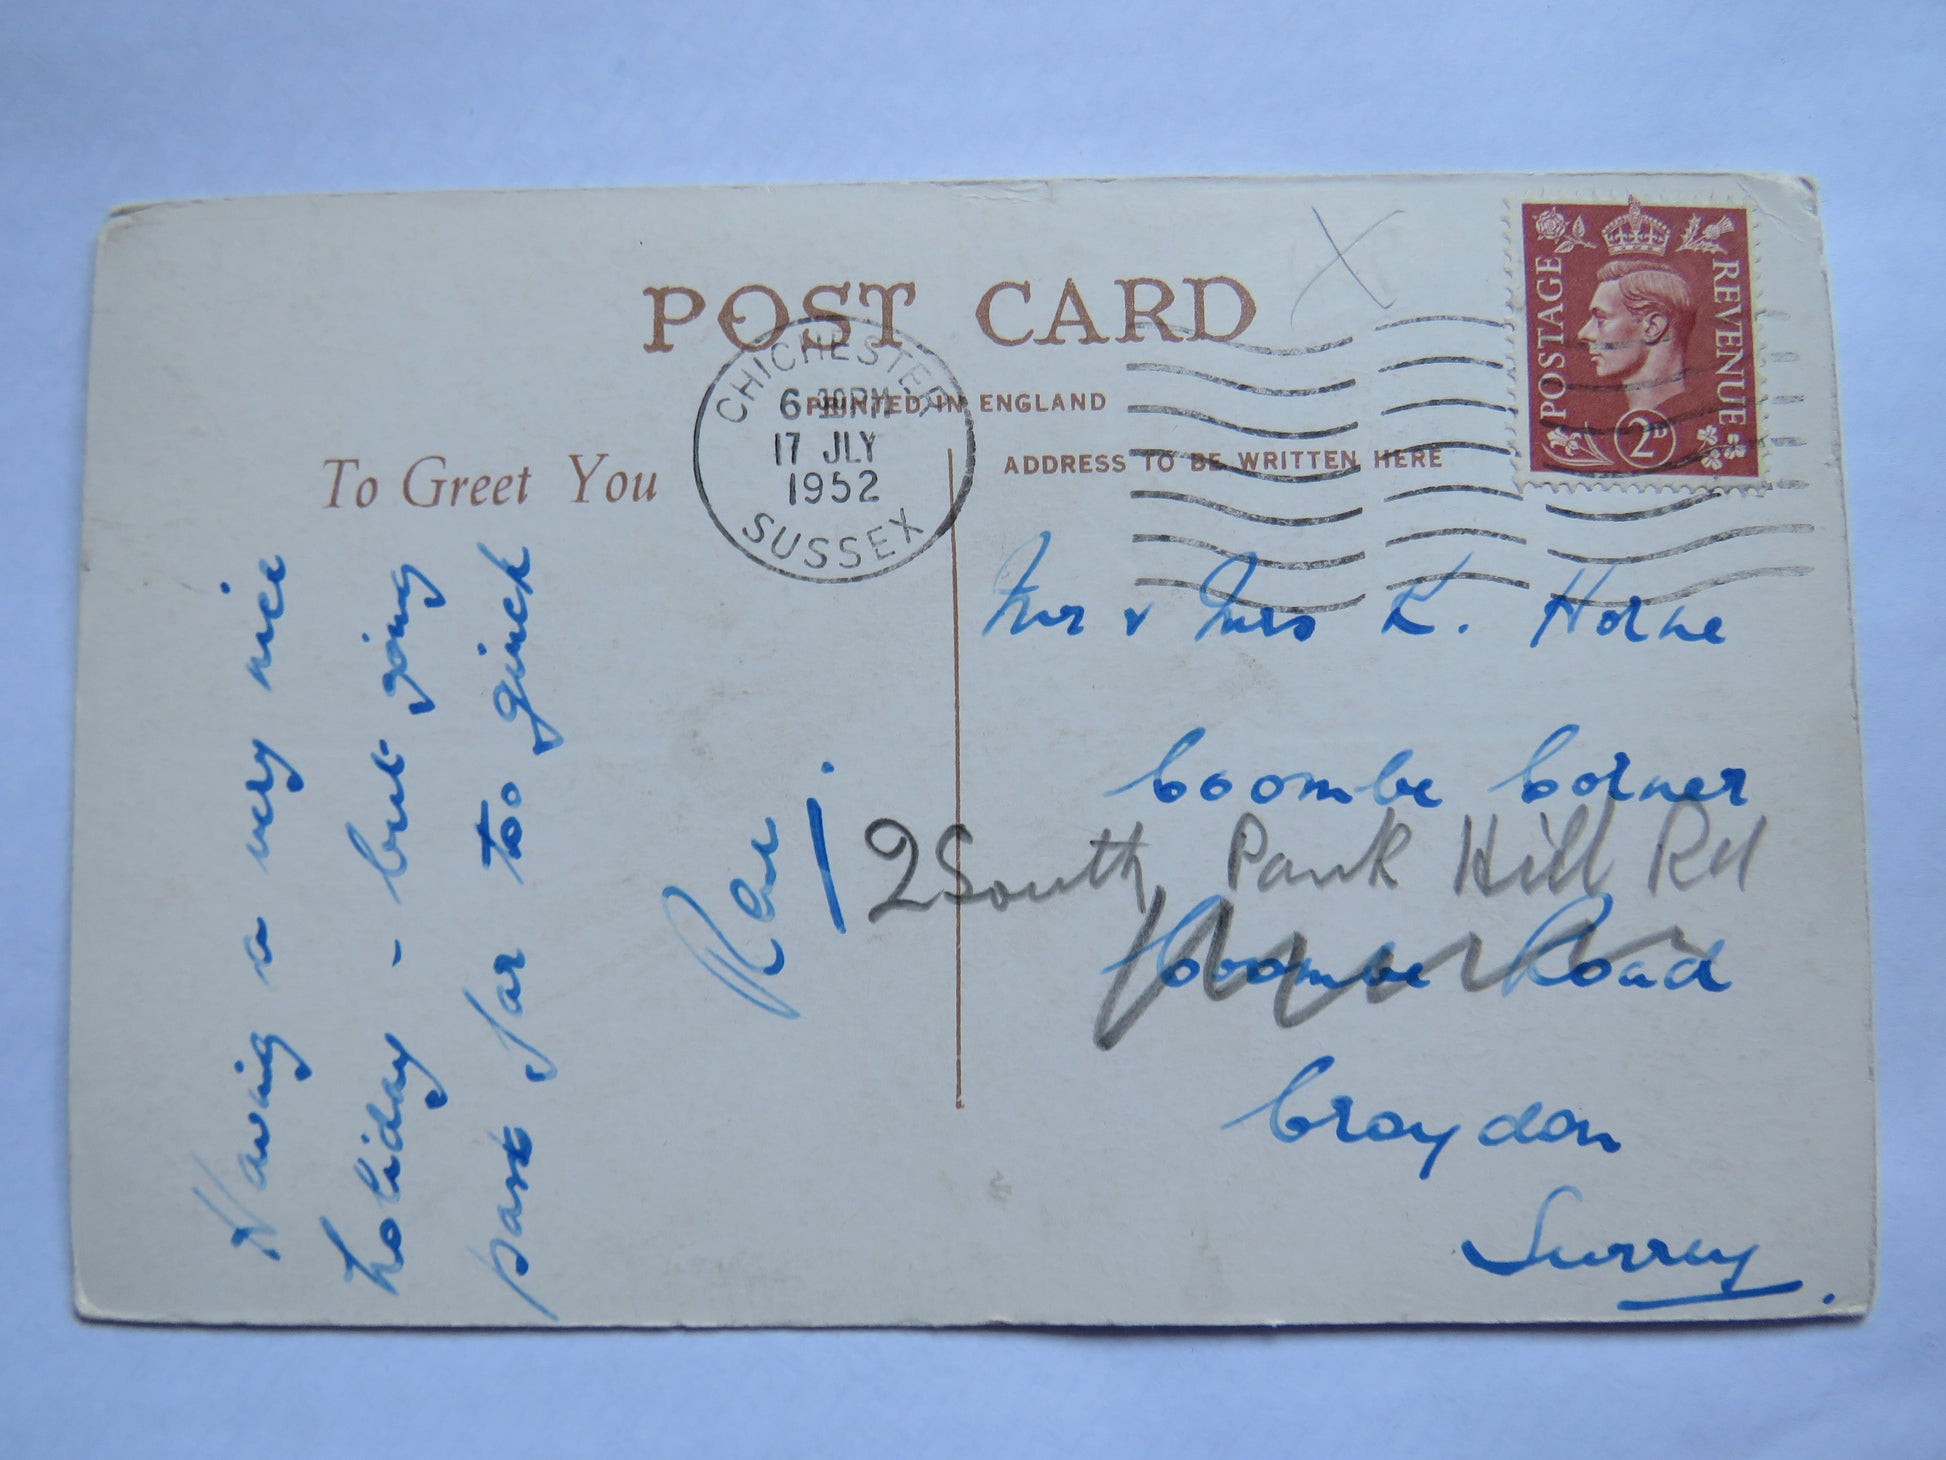 POST CARD
PRINTED IN ENGLAND
ADDRESS TO BE WRITTEN HERE
To Greet You
CHICHESTER
6 30 PM
17 JLY
1952
SUSSEX
POSTAGE
REVENUE
2D
Having a very nice
holiday - but going
past far too quick
Mr & Mrs K. Horne
Coombe Corner
2 South Park Hill Rd
Coombe Road
Croydon
Surrey.